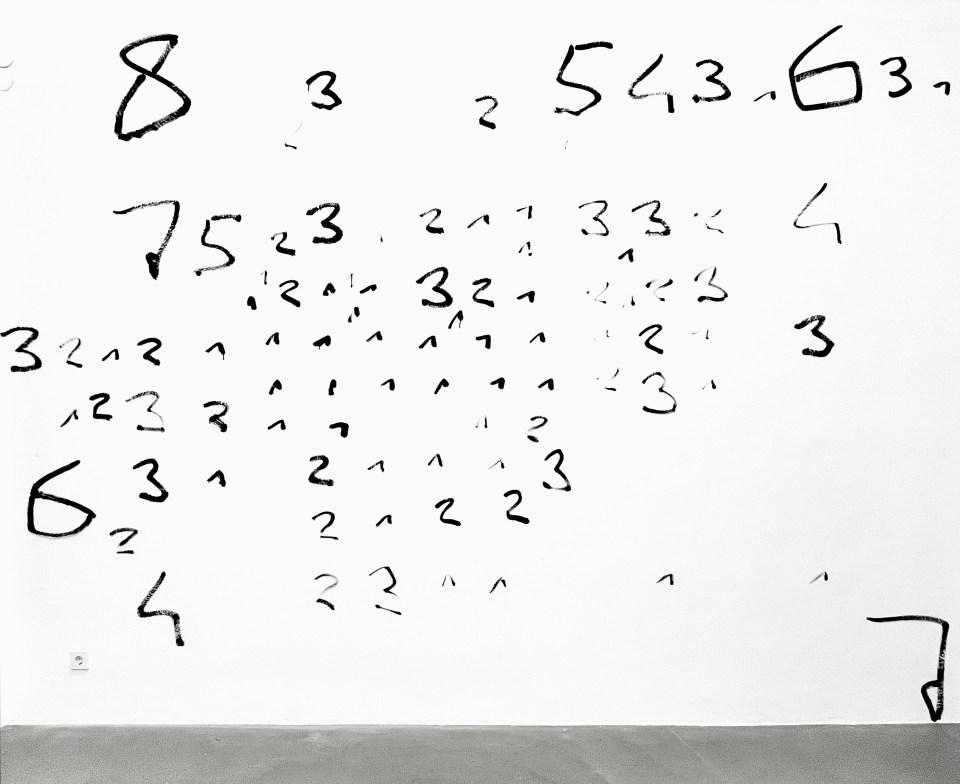 8 3 2 5 4 3 1 6 3 1
7 5 2 3 2 1 1 3 3 2 4
1 2 1 1 1 3 2 1 2 1 2 3
3 2 1 2 1 1 1 1 1 1 1 2 1 3
1 1 1 1 1 1 2 3 1
1 2 3 2 1 1 1 2
6 3 1 2 1 1 1 3
2 2 1 2 2
4 2 3 1 1 1 1
7